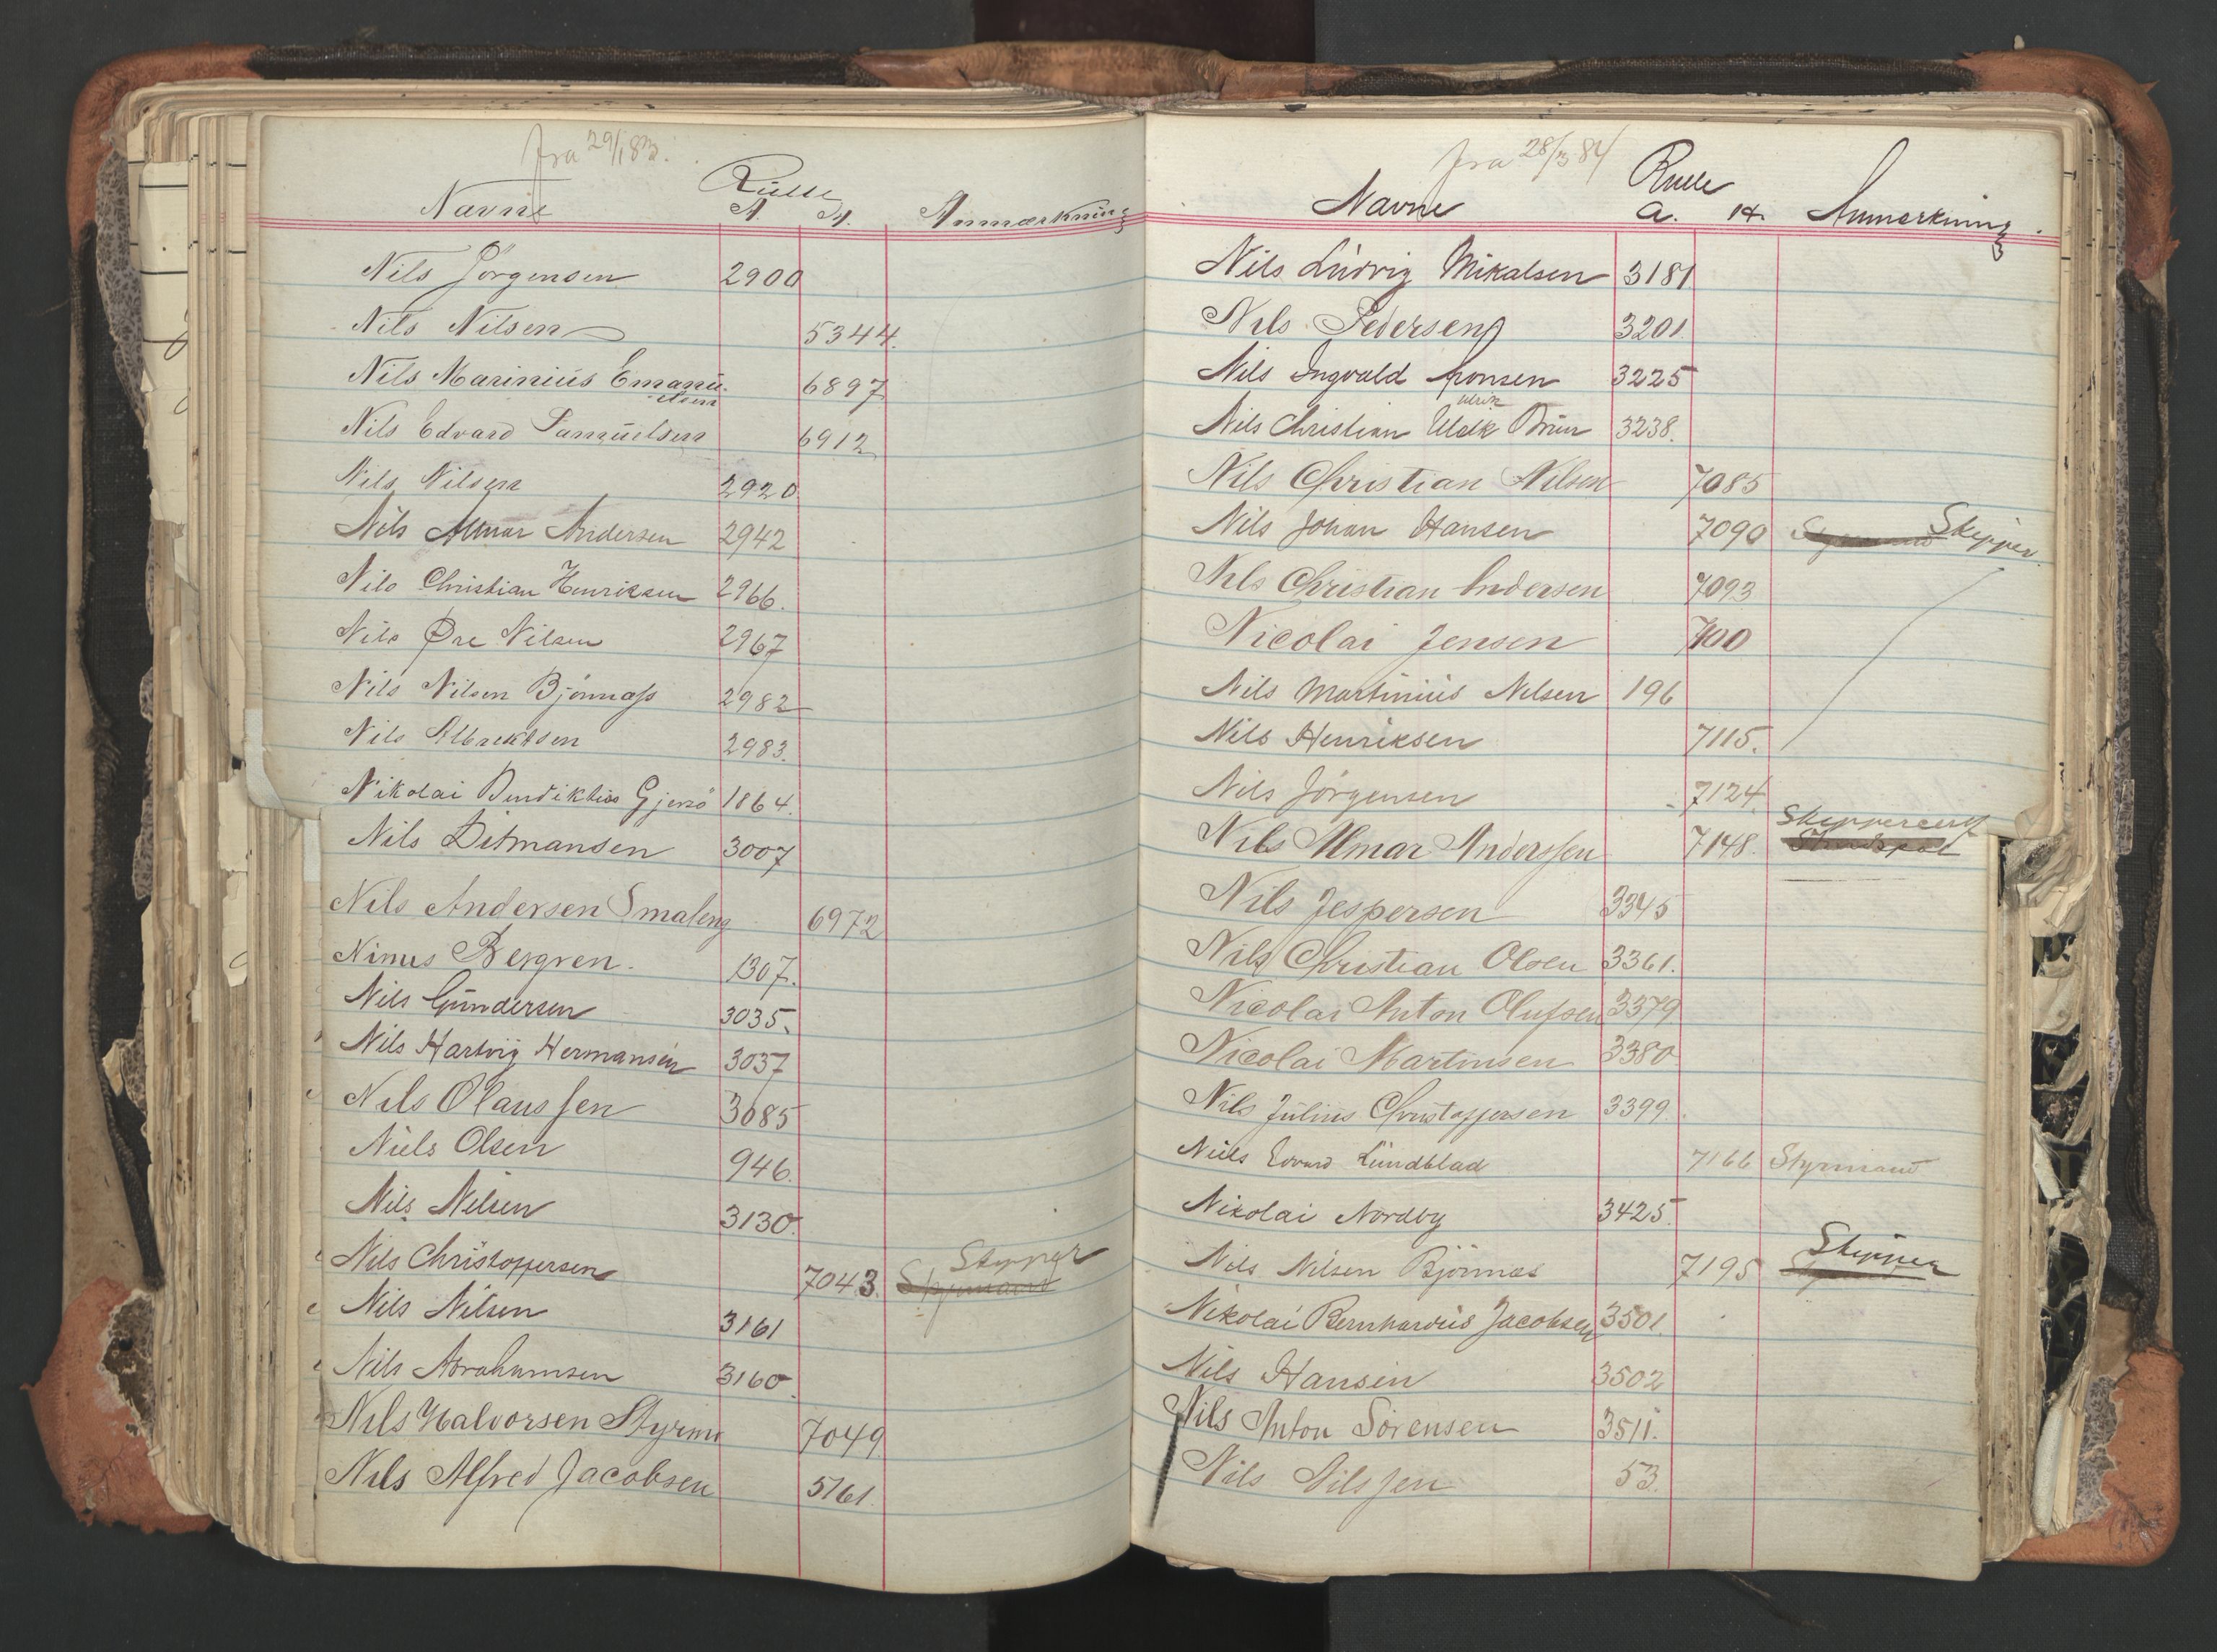 fra 29/1 83.
Rulle
Navne A. H. Anmærkning
Nils Jörgensen 2900
Nils Nilsen 5344.
Nils Marinius Emanu- 6897
elsen
Nils Edvard Samuelsen 6912
Nils Nilsen 2920
Nils Almar Andersen 2942
Nils Christian Henriksen 2966.
Nils Øre Nilsen 2967
Nils Nilsen Bjönnæss 2982
Nils Albrektsen 2983.
Nikolai Bendiktius Gjersö 1864.
Nils Ditmansen 3007
Nils Andersen Smaleng 6972
Ninus Bergren. 1307.
Nils Gundersen 3035.
Nils Hartvig Hermansen 3037
Nils Olaussen 3085
Niels Olsen 946.
Nils Nilsen 3130.
Nils Christoffersen 7043. Styrmand Skipper
Nils Nilsen 3161
Nils Abrahamsen 3160.
Nils Halvorsen Styrm 7049
Nils Alfred Jacobsen 5161.
fra 28/3 84
Rulle
Navne A. H. Anmerkning
Nils Ludvig Mikalsen 3181
Nils Pedersen 3201.
Nils Ingvald Aronsen 3225
Ulrik
Nils Christian Ulrik Brun 3238.
Nils Christian Nilsen 7085
Nils Johan Hansen 7090 Styrmand Skipper
Nils Christian Andersen 7093
Nicolai Jensen 7100
Nils Martinius Nilsen 196
Nils Henriksen 7115.
Nils Jörgensen 7124.
Nils Almar Anderssen 7148. Skippercert
Nils Jespersen 3345
Nils Christian Olsen 3361.
Nicolai Anton Olufsen 3379
Nicolai Martinsen 3380
Nils Julius Christoffersen 3399.
Niels Edvard Lundblad 7166 Styrmand
Nikolai Nordby 3425.
Nils Nilsen Bjönnæs 7195 Skipper
Nikolai Bernhardus Jacobsen 3501.
Nils Hansen 3502
Nils Anton Sörensen 3511.
Nils Nilssen 53.